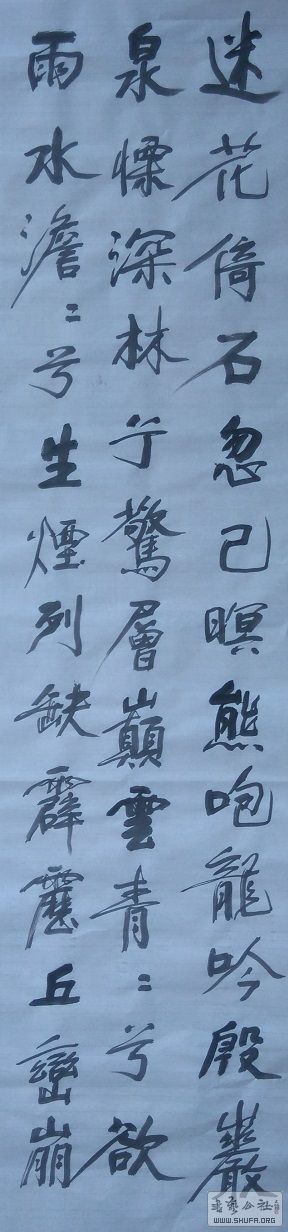 迷花倚石忽已暝熊咆龍吟殷巖
泉慄深林兮驚層巔雲青〻兮欲
雨水澹〻兮生煙列缺霹靂丘巒崩
書藝公社
WWW.SHUFA.ORG